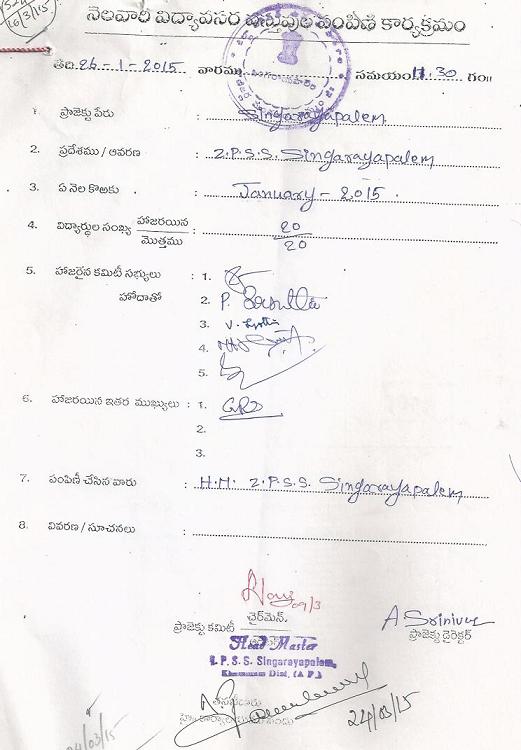 16/3/15
నెలవారి విద్యావసర వస్తువుల పంపిణి కార్యక్రమం
తేది 26-1-2015 వారము సమయం 11.30 గం॥
1. ప్రాజెక్టు పేరు : Singarayapalem
2. ప్రదేశము / ఆవరణ : Z.P.S.S. Singarayapalem
3. ఏ నెల కొఱకు : January - 2015.
4. విద్యార్థుల సంఖ్య హాజరయిన / మొత్తము : 20/20
5. హాజరైన కమిటీ సభ్యులు : 1.
హోదాతో 2. P.
3. V. Jyothi
4.
5.
6. హాజరయిన ఇతర ముఖ్యులు : 1.
2.
3.
7. పంపిణీ చేసిన వారు : H.M. Z.P.S.S. Singarayapalem
8. వివరణ / సూచనలు :
09/3
ప్రాజెక్టు కమిటీ చైర్‌మెన్.
A Srinivas
ప్రాజెక్టు డైరెక్టర్
Head Master
Z. P. S. S. Singarayapalem,
Khammam Dist. (A P.)
24/03/15
24/03/15